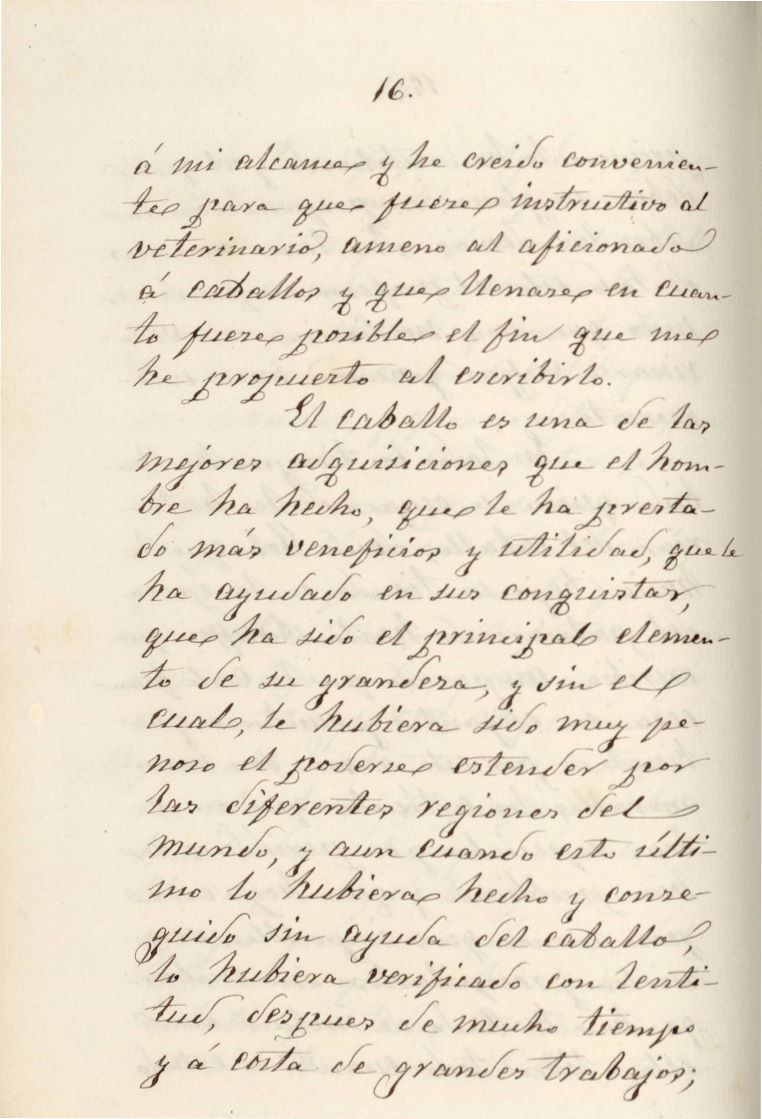 16.
á mi alcance y he creido convenien-
te para que fuese instructivo al
veterinario, ameno al aficionado
á caballos y que llenase en cuan-
to fuese posible el fin que me
he propuesto al escribirlo.
El caballo es una de las
mejores adquisiciones que el hom-
bre ha hecho, que le ha presta-
do más veneficios y utilidad, que le
ha ayudado en sus conquistas,
que ha sido el principal elemen-
to de su grandeza, y sin el
cual, le hubiera sido muy pe-
noso el poderse estender por
las diferentes regiones del
mundo, y aun cuando esto últi-
mo lo hubiera hecho y conse-
guido sin ayuda del caballo,
lo hubiera verificado con lenti-
tud, despues de mucho tiempo
y á costa de grandes trabajos;